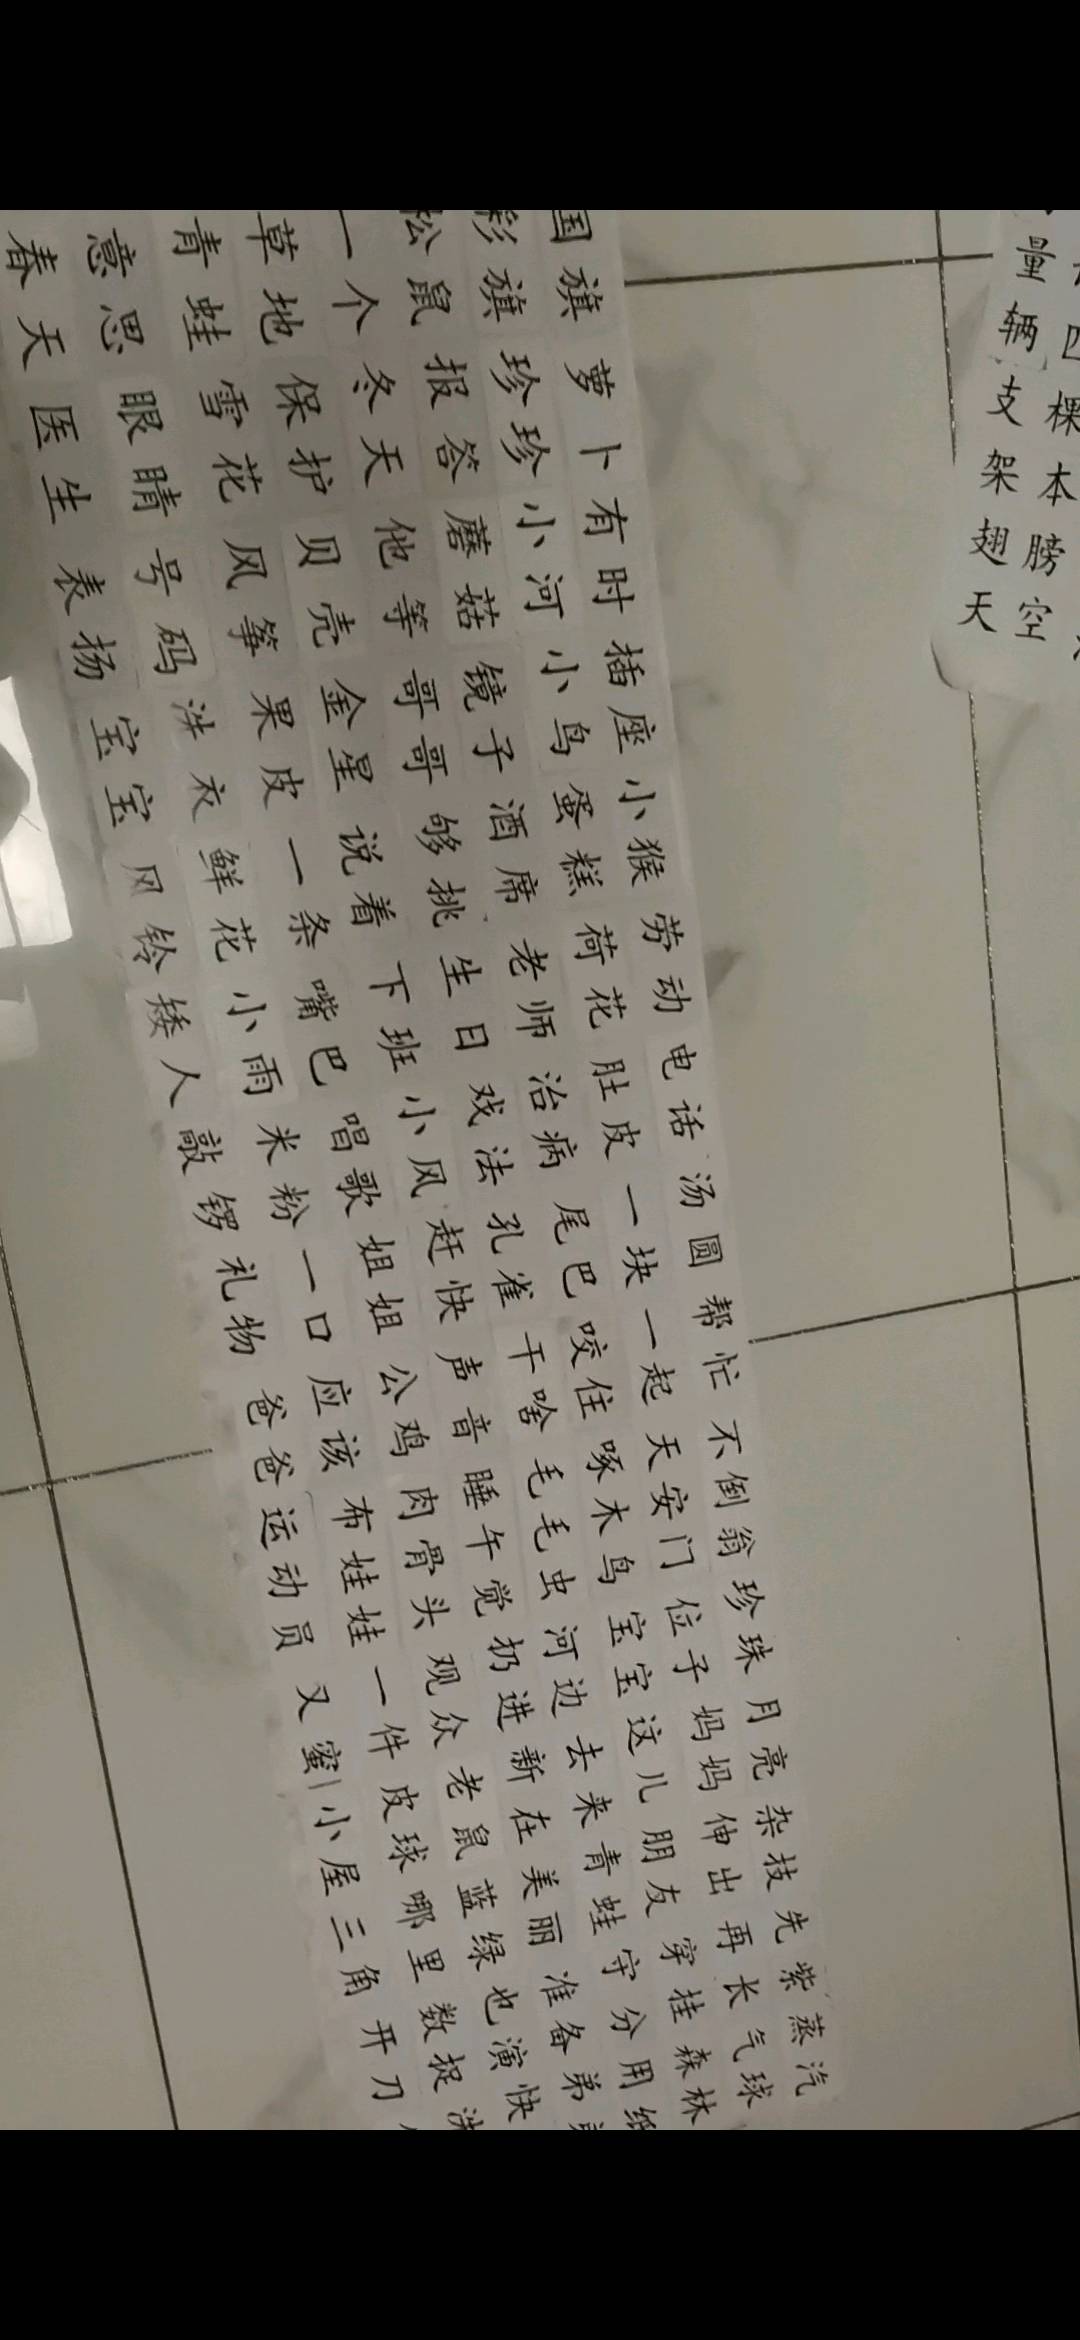 国旗 萝卜 有时 插座 小猴 劳动 电话 汤圆 帮忙 不倒翁 珍珠 月亮 杂技 先 紫 蒸 汽
彩旗 珍珍 小河 小鸟 蛋糕 荷花 肚皮 一块 一起 天安门 位子 妈妈 伸出 再 长 气球
松鼠 报答 蘑菇 镜子 酒席 老师 治病 尾巴 咬住 啄木鸟 宝宝 这儿 朋友 穿 挂 森林
一个 冬天 他 等 哥哥 够 挑 生日 戏法 孔雀 干啥 毛毛虫 河边 去 来 青蛙 守 分 用 纸
草地 保护 贝壳 金星 说着 下班 小风 赶快 声音 睡午觉 扔进 新 在 美丽 准备 弟
青蛙 雪花 风筝 果皮 一条 嘴巴 唱歌 姐姐 公鸡 肉骨头 观众 老鼠 蓝 绿 也 演 快
意思 眼睛 号码 洗衣 鲜花 小雨 米粉 一口 应该 布娃娃 一件 皮球 哪里 数 捉 洗
春天 医生 表扬 宝宝 风铃 矮人 敲锣 礼物 爸爸 运动员 又 蜜 小屋 三角 开 刀
量
辆 匹
支 棵
架 本
翅膀
天空